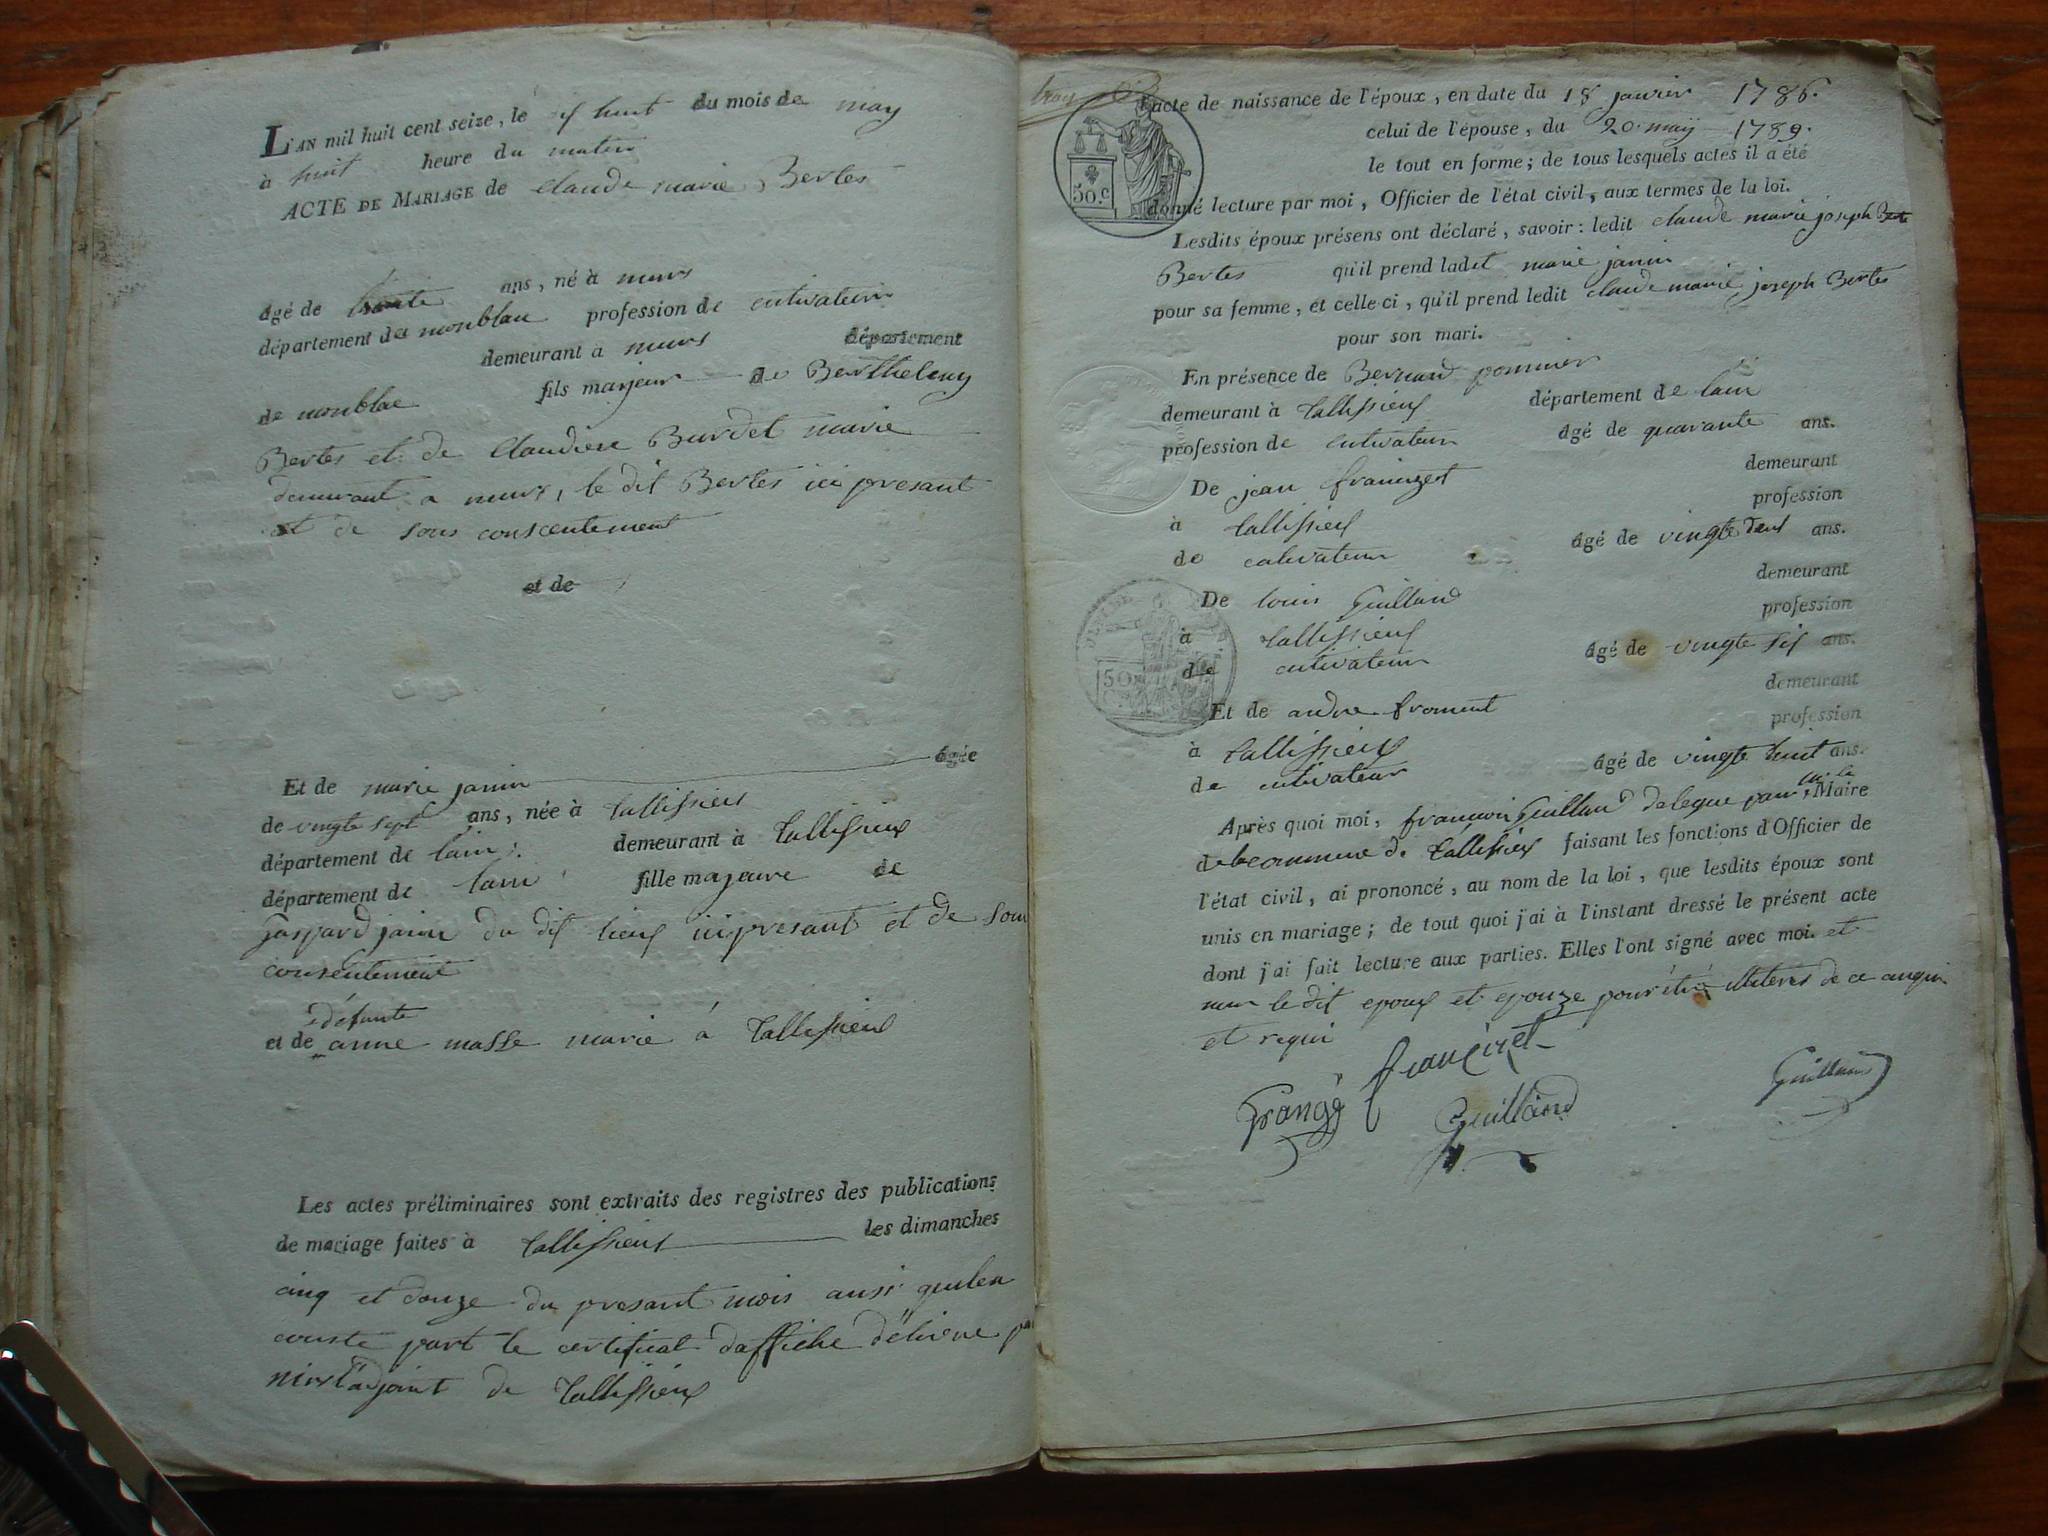 L'AN mil huit cent seize, le dix huit du mois de may
à huit heure du matin
ACTE DE MARIAGE de claude marie Bertes
âgé de trente ans, né à murs
département du monblau profession de cutivateur
demeurant à murs département
de monblac fils majeur de Berthelemy
Bertes et de Claudiene Burdet marie
demurant a murs, le dit Bertes ici presant
et de sons conscentement
et de
Et de marie janin âgée
de vingte sept ans, née à tallissieux
département de lain demeurant à tallissieux
département de lain fille majeure de
Gaspard janin du dit lieux ici presant et de son
consentement
défunte
et de anne masse marié á tallissieux
Les actes préliminaires sont extraits des registres des publications
de mariage faites à tallissieux les dimanches
cinq et douze du presant mois ausi quilen
couste part le certificat daffiche délivre
adjoint de tallissieux
l'acte de naissance de l'époux, en date du 18 janvier 1786.
celui de l'épouse, du 20 maÿ 1789.
le tout en forme; de tous lesquels actes il a été
50.c
donné lecture par moi, Officier de l'état civil, aux termes de la loi.
Lesdits époux présens ont déclaré, savoir: ledit claude marie joseph
Bertes qu'il prend ladit marie janin
pour sa femme, et celle-ci, qu'il prend ledit claude marie joseph Bertes
pour son mari.
En présence de Bernard pommier
demeurant à tallissieux département de lain
profession de cutivateur âgé de quarante ans.
De jean francizet demeurant
à tallissieux profession
de cutivateur âgé de vingte deux ans.
De louis Guilland demeurant
à tallissieux profession
de cutivateur âgé de vingte six ans.
Et de andre froment demeurant
à tallissieux profession
de cutivateur âgé de vingte huit ans.
Après quoi moi, francoin Guilland delegue par mr le Maire
de la commune de tallissieux faisant les fonctions d'Officier de
l'état civil, ai prononcé, au nom de la loi, que lesdits époux sont
unis en mariage; de tout quoi j'ai à l'instant dressé le présent acte
dont j'ai fait lecture aux parties. Elles l'ont signé avec moi. et
non le dit epoux et epouze pour étre illiteres de ce anquis
et requi
francizet
Grangé Guilland Guilland